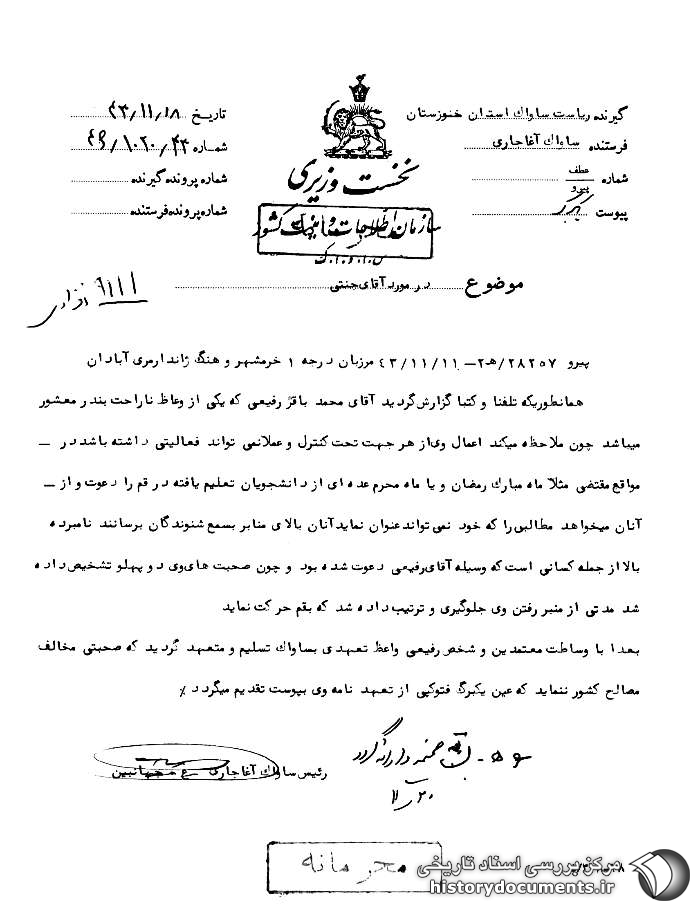 گیرنده ریاست ساواک استان خوزستان
فرستنده ساواک آغاجاری
شماره عطف پیرو
پیوست
تاریخ ۴۳/۱۱/۱۸
شماره
شماره پرونده گیرنده
شماره پرونده فرستنده
نخست وزیری
سازمان اطلاعات و امنیت کشور
س.ا.و.ا.ک
موضوع در مورد آقای جنتی
۹۱۱۱
پیرو ۲۸۲۵۷/هـ۲ــ ۴۳/۱۱/۱۱ مرزبان درجه ۱ خرمشهر و هنگ ژاندارمری آبادان
همانطوریکه تلفنا و کتبا گزارش گردید آقای محمد باقر رفیعی که یکی از وعاظ ناراحت بندر معشور
میباشد چون ملاحظه میکند اعمال وی از هر جهت تحت کنترل و عملا نمی تواند فعالیتی داشته باشد در ــ
مواقع مقتضی مثلا ماه مبارک رمضان و یا ماه محرم عده ای از دانشجویان تعلیم یافته در قم را دعوت و از ــ
آنان میخواهد مطالبی را که خود نمی تواند عنوان نماید آنان بالای منابر بسمع شنوندگان برسانند نامبرده
بالا از جمله کسانی است که وسیله آقای رفیعی دعوت شده بود و چون صحبت های وی دو پهلو تشخیص داده
شد مدتی از منبر رفتن وی جلوگیری و ترتیب داده شد که بقم حرکت نماید
بعدا با وساطت معتمدین و شخص رفیعی واعظ تعهدی بساواک تسلیم و متعهد گردید که صحبتی مخالف
مصالح کشور ننماید که عین یکبرگ فتوکپی از تعهد نامه وی بپیوست تقدیم میگردد ٪
رئیس ساواک آغاجاری
ضمیمه دارد
محرمانه
مرکز بررسی اسناد تاریخی
historydocuments.ir